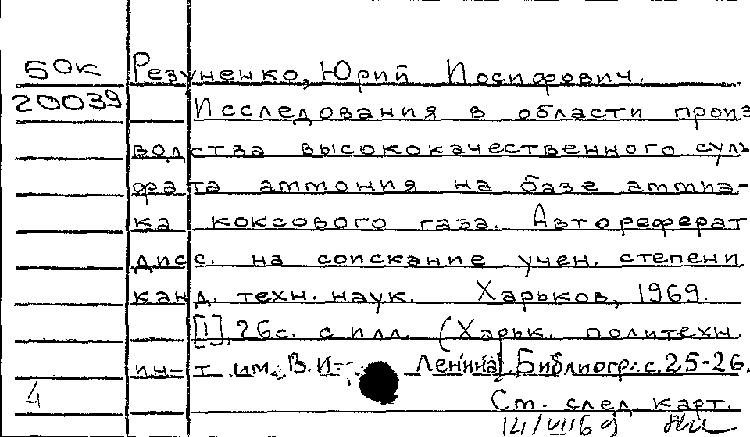 50к Резуненко, Юрий Иосифович.
20039 Исследования в области произ
водства высококачественного суль
фата аммония на базе аммиа-
ка коксового газа. Автореферат
дисс. на соискание учен. степени
канд. техн. наук. Харьков, 1969.
[1], 26с. с илл. (Харьк. политехн.
ин-т им. В.И. Ленина). Библиогр.: с.25-26.
4 См. след. карт.
14/VII69